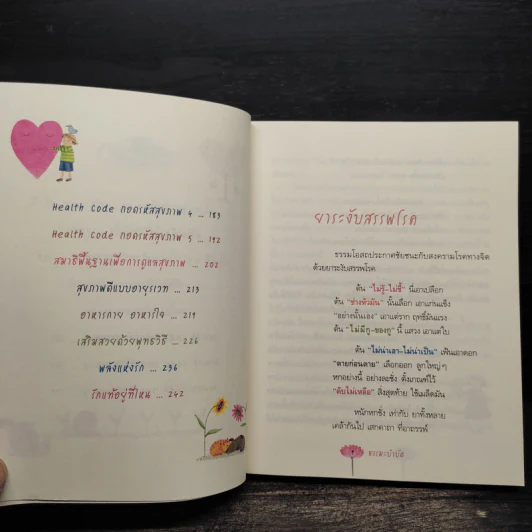 Health Code ถอดรหัสสุขภาพ 4 ... 183
Health Code ถอดรหัสสุขภาพ 5 ... 192
สมาธิพื้นฐานเพื่อการดูแลสุขภาพ ... 202
สุขภาพดีแบบอายุรเวท ... 213
อาหารกาย อาหารใจ ... 219
เสริมสวยด้วยพุทธวิธี ... 226
พลังแห่งรัก ... 236
รักแท้อยู่ที่ไหน ... 242
ยาระงับสรรพโรค
ธรรมโอสถประกาศชัยชนะกับสงครามโรคทางจิต
ด้วยยาระงับสรรพโรค
ต้น "ไม่รู้-ไม่ชี้" นี่เอาเปลือก
ต้น "ช่างหัวมัน" นั้นเลือก เอาแก่นแข็ง
"อย่างนั้นเอง" เอาแต่ราก ฤทธิ์มันแรง
ต้น "ไม่มีกู-ของกู" นี้ แสวง เอาแต่ใบ
ต้น "ไม่น่าเอา-ไม่น่าเป็น" เฟ้นเอาดอก
"ตายก่อนตาย" เลือกออก ลูกใหญ่ๆ
หกอย่างนี้ อย่างละชั่ง ตั้งเกณฑ์ไว้
"ดับไม่เหลือ" สิ่งสุดท้าย ใช้เมล็ดมัน
หนักหกชั่ง เท่ากับ ยาทั้งหลาย
เคล้ากันไป เสกคาถา ที่อาถรรพ์
ธรรมะบำบัด